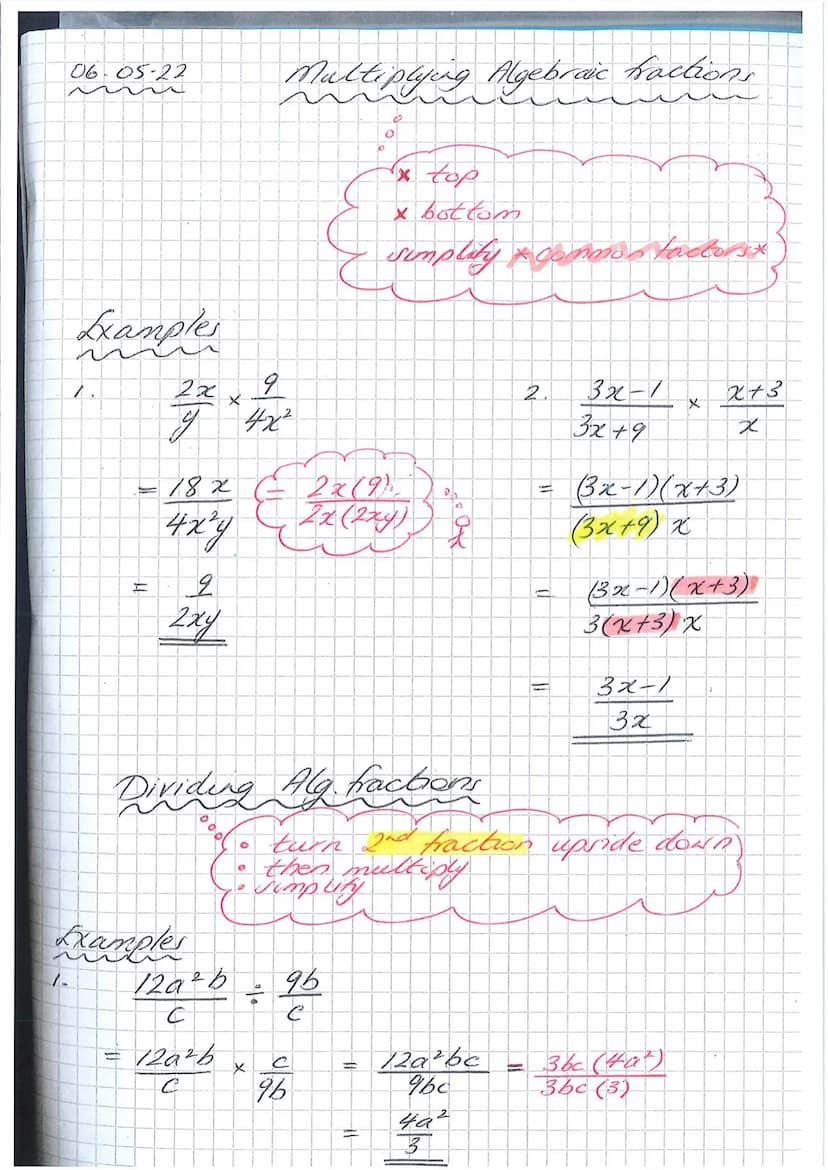 06.05.22 Multiplying Algebraic fractions
× top
× bottom
simplify *common factors*
Examples
1. 2x/y × 9/4x²
= 18x/4x²y = 2x(9)/2x(2xy)
= 9/2xy
2. 3x-1/3x+9 × x+3/x
= (3x-1)(x+3)/(3x+9)x
= (3x-1)(x+3)/3(x+3)x
= 3x-1/3x
Dividing Alg. fractions
• turn 2nd fraction upside down
• then multiply
• simplify
Examples
1. 12a²b/c ÷ 9b/c
= 12a²b/c × c/9b = 12a²bc/9bc = 3bc(4a²)/3bc(3)
= 4a²/3